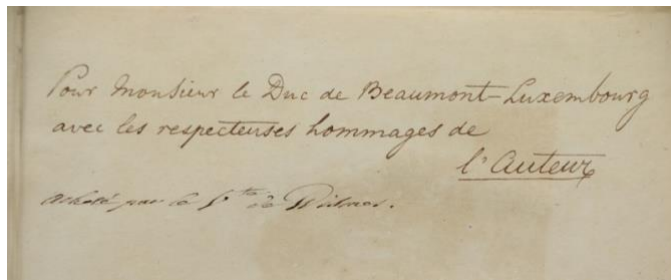 Pour Monsieur le Duc de Beaumont-Luxembourg
avec les respecteuses hommages de
l'Auteur
acheté par le V.te de